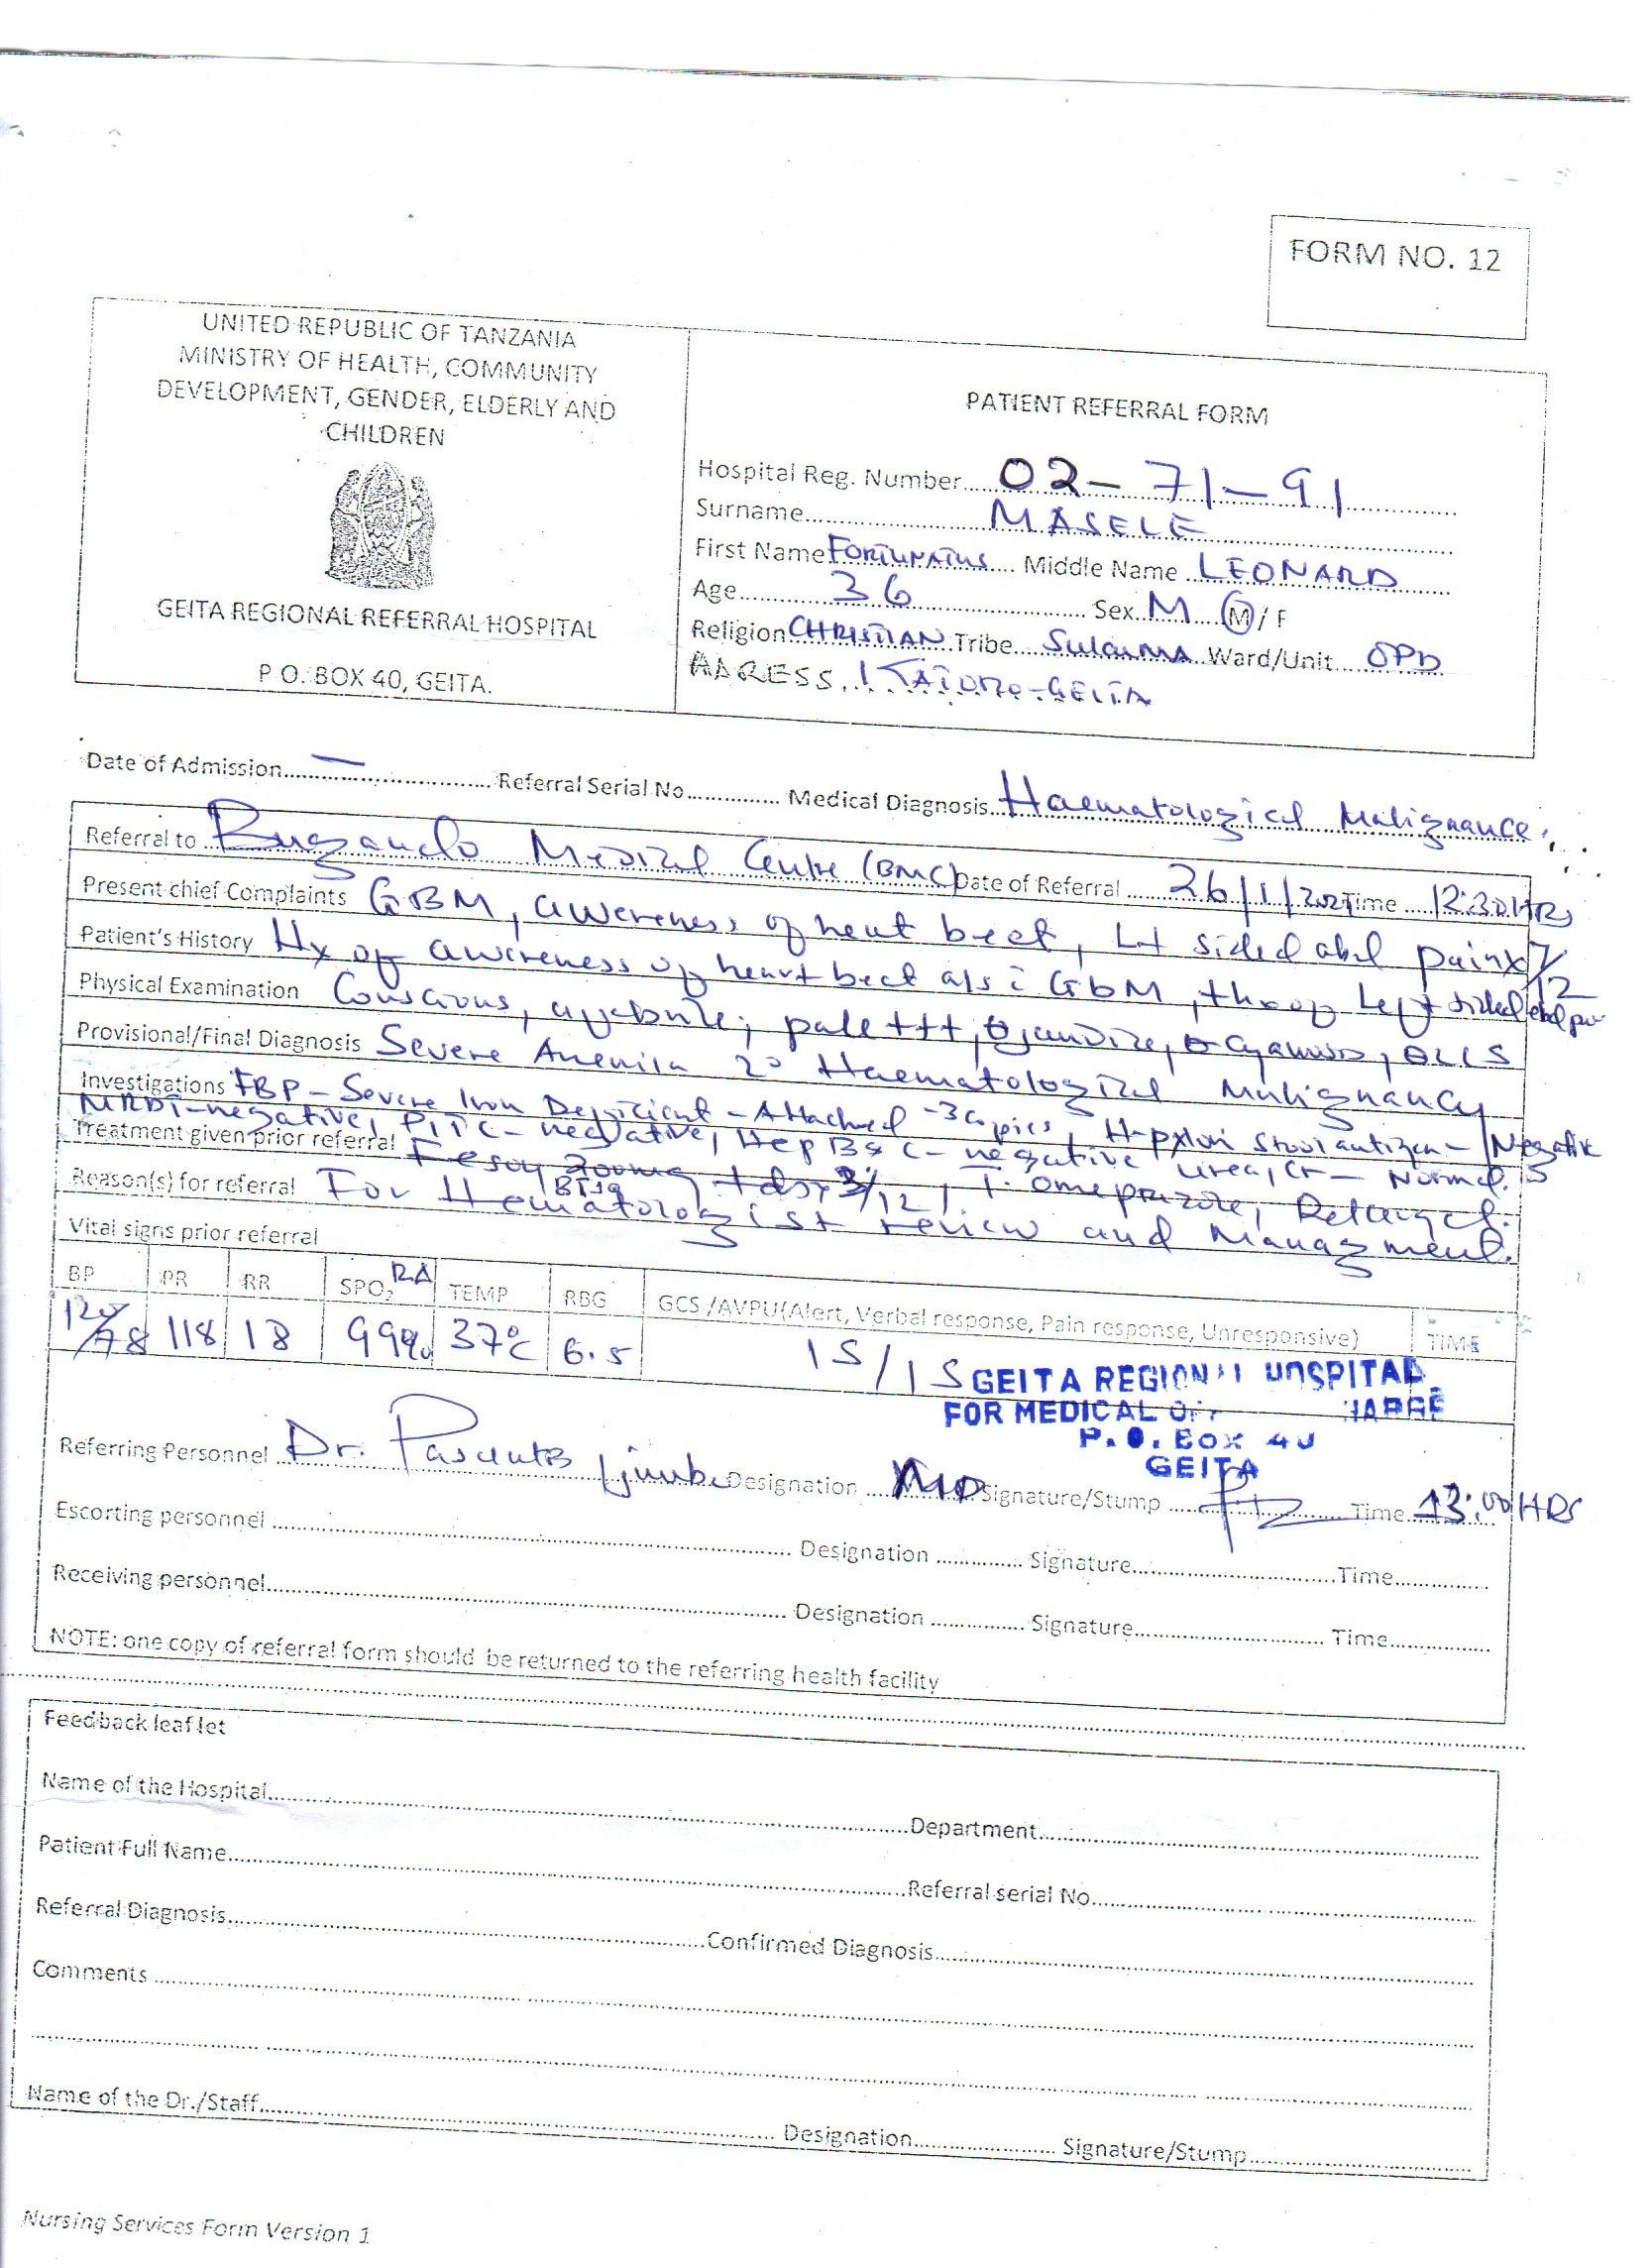 FORM NO. 12
UNITED REPUBLIC OF TANZANIA
MINISTRY OF HEALTH, COMMUNITY
DEVELOPMENT, GENDER, ELDERLY AND
CHILDREN
GEITA REGIONAL REFERRAL HOSPITAL
P O. BOX 40, GEITA.
PATIENT REFERRAL FORM
Hospital Reg. Number 02-71-91
Surname MASELE
First Name FORTUNATUS Middle Name LEONARD
Age 36 Sex M M/F
Religion CHRISTIAN Tribe Sukuma Ward/Unit OPD
ADRESS KATORO-GEITA
Date of Admission — Referral Serial No Medical Diagnosis Haematological Malignance
Referral to Bugando Medical Centre (BMC) Date of Referral 26/1/2021 Time 12:30HRS
Present chief Complaints GBM, awareness of heart beat, Lt sided abd pain x 7/12
Patient's History Hx of awareness of heart beat a/s c GBM, Left sided abd
Physical Examination Conscious, pale +++, jaundice, cyanosis,
Provisional/Final Diagnosis Severe Anemia 2° Haematological Malignancy
Investigations FBP - Severe Iron Deficient - Attached - 3 copies, H-pylori stool antigen - Negative
MRDT-negative, PITC - negative, Hep B & C - negative urea, Cr - Normal.
Treatment given prior referral Fesoy 200mg tds x 3/12, T. omeprazole,
Reason(s) for referral For Hematologist review and Managment.
Vital signs prior referral
BP PR RR SPO2 RA TEMP RBG GCS /AVPU(Alert, Verbal response, Pain response, Unresponsive) TIME
120/78 118 18 99% 37°C 6.5 15/15
GEITA REGIONAL HOSPITAL
FOR MEDICAL
P. O. BOX 40
GEITA
Referring Personnel Dr. Designation MD Signature/Stump Time 13:00HRS
Escorting personnel Designation Signature Time
Receiving personnel Designation Signature Time
NOTE: one copy of referral form should be returned to the referring health facility
Feedback leaflet
Name of the Hospital Department
Patient Full Name Referral serial No
Referral Diagnosis Confirmed Diagnosis
Comments
Name of the Dr./Staff Designation Signature/Stump
Nursing Services Form Version 1